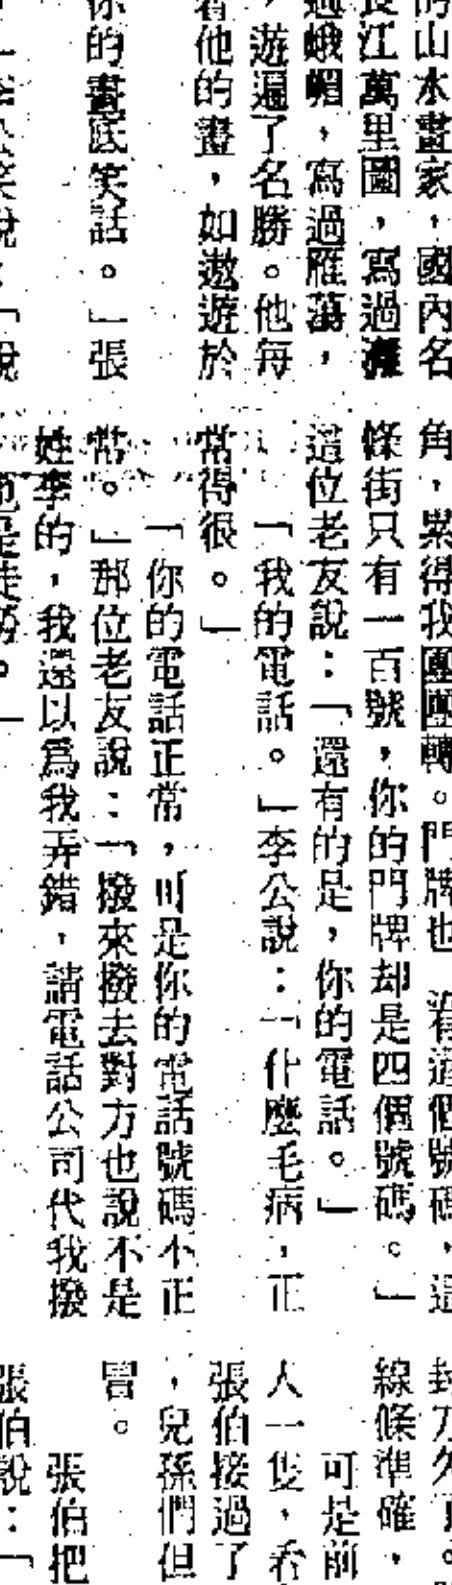 的山水畫家，國內名
長江萬里圖，寫過灕
過峨嵋，寫過雁蕩，
，遊遍了名勝。他每
着他的畫，如遨遊於
你的畫底笑話。」張
李公笑說：「說
角，累得我團團轉。門牌也　沒有這個號碼，這
條街只有一百號，你的門牌却是四個號碼。」
這位老友說：「還有的是，你的電話。」
「我的電話。」李公說：「什麼毛病，正
常得很。」
「你的電話正常，可是你的電話號碼不正
常。」那位老友說：「撥來撥去對方也說不是
姓李的，我還以爲我弄錯，請電話公司代我撥
，也是徒勞。」
線條準確，
可是前
人一隻，看
張伯接過了
，兒孫們但
冒。
張伯把
張伯說：「